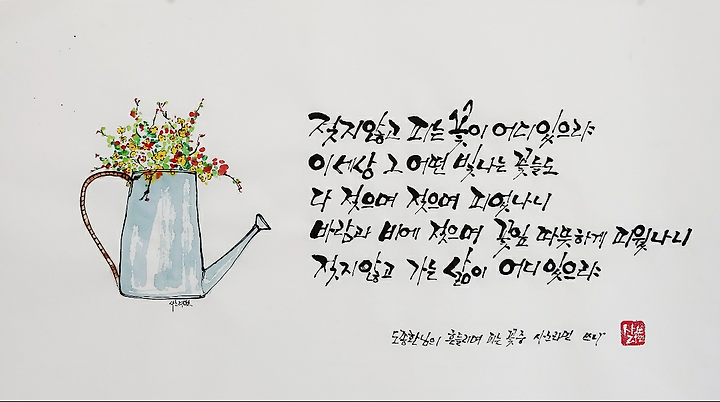 젖지않고 피는 꽃이 어디있으랴
이 세상 그 어떤 빛나는 꽃들도
다 젖으며 젖으며 피었나니
바람과 비에 젖으며 꽃잎 따뜻하게 피웠나니
젖지않고 가는 삶이 어디있으랴
도종환님의 흔들리며 피는 꽃중 쓰다